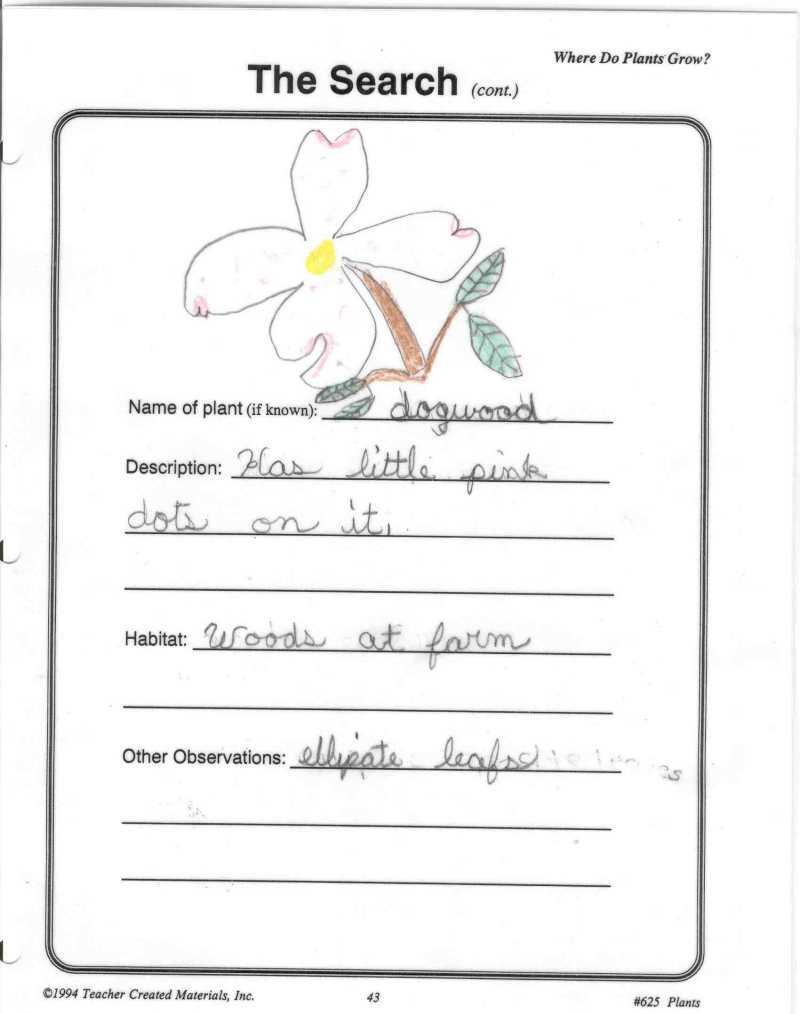 Where Do Plants Grow?
The Search (cont.)
Name of plant (if known): dogwood
Description: Has little pink
dots on it.
Habitat: Woods at farm
Other Observations: ellipate leafs
©1994 Teacher Created Materials, Inc.
43
#625 Plants